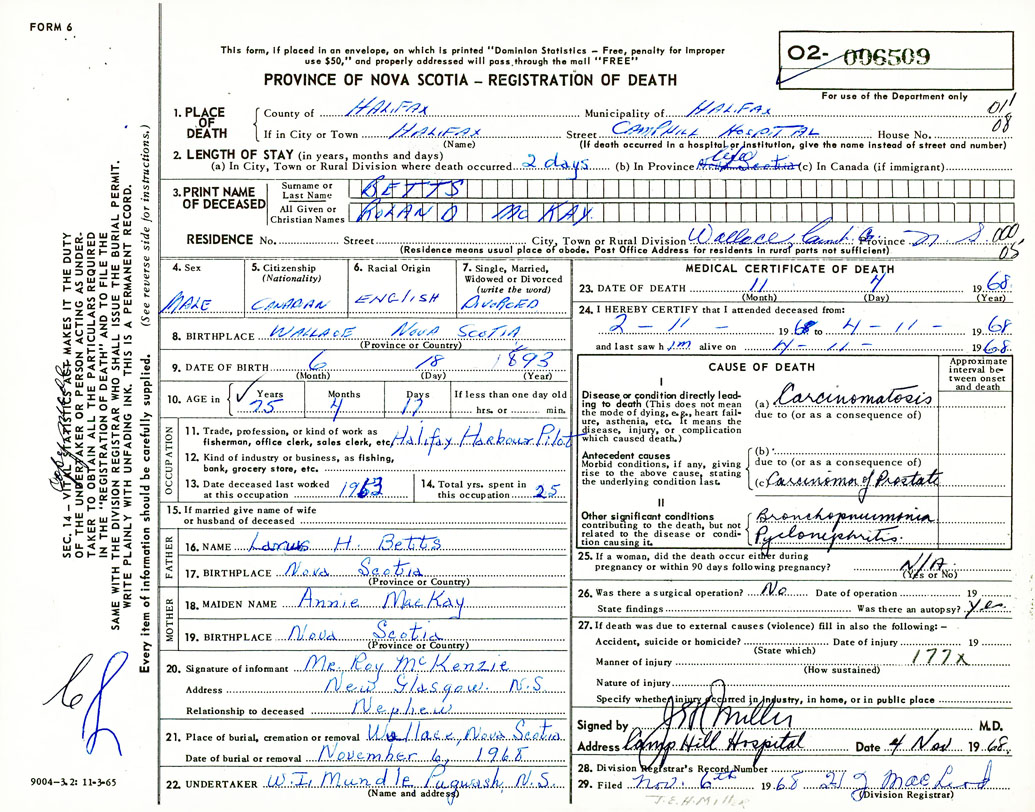 FORM 6
This form, if placed in an envelope, on which is printed "Dominion Statistics – Free, penalty for improper
use $50," and properly addressed will pass through the mail "FREE"
O2- 006509
PROVINCE OF NOVA SCOTIA – REGISTRATION OF DEATH
For use of the Department only
1. PLACE OF DEATH
County of HALIFAX Municipality of HALIFAX 011
If in City or Town HALIFAX Street CAMPHILL HOSPITAL House No. 08
(Name) (If death occurred in a hospital or institution, give the name instead of street and number)
2. LENGTH OF STAY (in years, months and days)
(a) In City, Town or Rural Division where death occurred 2 days (b) In Province Life (c) In Canada (if immigrant)
3. PRINT NAME OF DECEASED
Surname or Last Name BETTS
All Given or Christian Names ROLAND McKAY
RESIDENCE No. Street City, Town or Rural Division Wallace, Cumb. Co. Province N.S. 000
(Residence means usual place of abode. Post Office Address for residents in rural parts not sufficient) 05
4. Sex MALE
5. Citizenship (Nationality) CANADIAN
6. Racial Origin ENGLISH
7. Single, Married, Widowed or Divorced (write the word) DIVORCED
8. BIRTHPLACE WALLACE NOVA SCOTIA
(Province or Country)
9. DATE OF BIRTH 6 18 1893
(Month) (Day) (Year)
10. AGE in Years Months Days If less than one day old
75 4 17 hrs. or min.
OCCUPATION
11. Trade, profession, or kind of work as
fisherman, office clerk, sales clerk, etc. Halifax Harbour Pilot
12. Kind of industry or business, as fishing,
bank, grocery store, etc.
13. Date deceased last worked at this occupation 1963
14. Total yrs. spent in this occupation 25
15. If married give name of wife
or husband of deceased
FATHER
16. NAME H. Betts
17. BIRTHPLACE Nova Scotia
(Province or Country)
MOTHER
18. MAIDEN NAME Annie MacKay
19. BIRTHPLACE Nova Scotia
(Province or Country)
20. Signature of informant Mr. Roy McKenzie
Address New Glasgow. N.S.
Relationship to deceased Nephew
21. Place of burial, cremation or removal Wallace, Nova Scotia
Date of burial or removal November 6, 1968
22. UNDERTAKER W.I. Mundle Pugwash N.S.
(Name and address)
MEDICAL CERTIFICATE OF DEATH
23. DATE OF DEATH 11 4 1968.
(Month) (Day) (Year)
24. I HEREBY CERTIFY that I attended deceased from:
2 - 11 - 1968 to 4 - 11 - 1968
and last saw him alive on 4 - 11 - 1968.
CAUSE OF DEATH
Approximate interval between onset and death
I
Disease or condition directly leading to death (This does not mean the mode of dying, e.g., heart failure, asthenia, etc. It means the disease, injury, or complication which caused death.)
(a) Carcinomatosis
due to (or as a consequence of)
Antecedent causes
Morbid conditions, if any, giving rise to the above cause, stating the underlying condition last.
(b)
due to (or as a consequence of)
(c) Carcinoma of Prostate
II
Other significant conditions
contributing to the death, but not related to the disease or condition causing it.
Bronchopneumonia
Pyelonephritis.
25. If a woman, did the death occur either during
pregnancy or within 90 days following pregnancy? N/A.
(Yes or No)
26. Was there a surgical operation? No Date of operation 19
State findings Was there an autopsy? Yes
27. If death was due to external causes (violence) fill in also the following: –
Accident, suicide or homicide? Date of injury 19
(State which)
Manner of injury 177X
(How sustained)
Nature of injury
Specify whether injury occurred in industry, in home, or in public place
Signed by Miller M.D.
Address Camp Hill Hospital Date 4 Nov 1968.
28. Division Registrar's Record Number
29. Filed Nov. 6th 1968 MacLeod
J.E.H. Miller (Division Registrar)
SEC. 14 – VITAL STATISTICS ACT MAKES IT THE DUTY
OF THE UNDERTAKER OR PERSON ACTING AS UNDER-
TAKER TO OBTAIN ALL THE PARTICULARS REQUIRED
IN THE "REGISTRATION OF DEATH" AND TO FILE THE
SAME WITH THE DIVISION REGISTRAR WHO SHALL ISSUE THE BURIAL PERMIT.
WRITE PLAINLY WITH UNFADING INK. THIS IS A PERMANENT RECORD.
Every item of information should be carefully supplied. (See reverse side for instructions.)
9004–3.2: 11-3-65